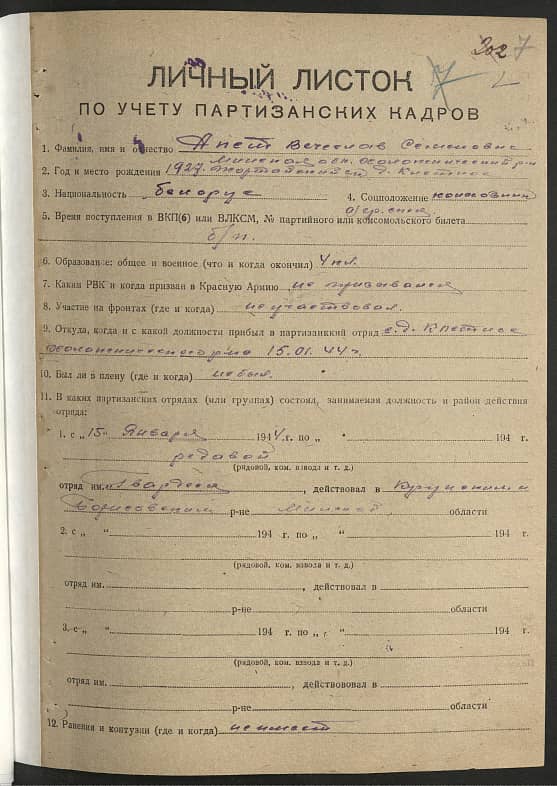 202 7
7
ЛИЧНЫЙ ЛИСТОК
ПО УЧЕТУ ПАРТИЗАНСКИХ КАДРОВ
1. Фамилия, имя и отчество Апет Вечеслав Семенович
Минская обл.
2. Год и место рождения 1927.
3. Национальность белорус 4. Соцположение
5. Время поступления в ВКП(б) или ВЛКСМ, № партийного или комсомольского билета
б/п.
6. Образование: общее и военное (что и когда окончил) 4 кл.
7. Каким РВК и когда призван в Красную Армию не призывался
8. Участие на фронтах (где и когда) не участвовал.
9. Откуда, когда и с какой должности прибыл в партизанский отряд с д.
15.01.44 г.
10. Был ли в плену (где и когда) не был.
11. В каких партизанских отрядах (или группах) состоял, занимаемая должность и район действия
отряда:
1. с „ 15 " Января 1944 г. по „ " 194 г.
редавой
(рядовой, ком. взвода и т. д.)
отряд им. , действовал в Крупском и
Борисовском р-не Минской области
2. с „ " 194 г. по „ " 194 г.
(рядовой, ком. взвода и т. д.)
отряд им. , действовал в
р-не области
3. с „ " 194 г. по „ " 194 г.
(рядовой, ком. взвода и т. д.)
отряд им. , действововал в
р-не области
12. Ранения и контузии (где и когда) не имеет